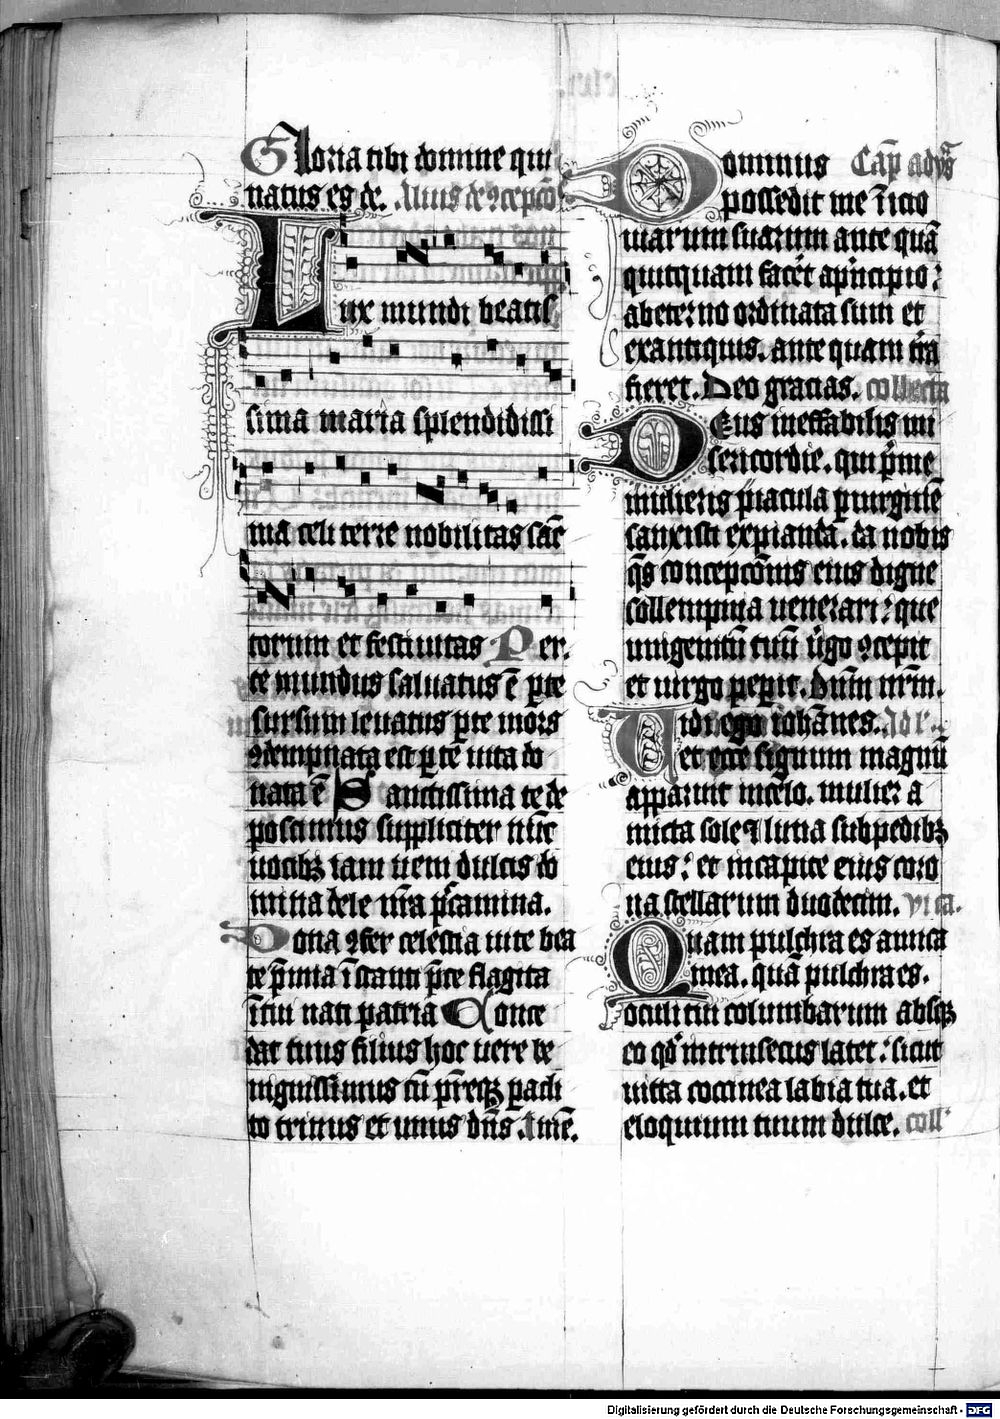 Gloria tibi domine qui
natus es de. Alius de ꝯcepcōe
Lux mundi beatis
sima maria splendidissi
ma celi terre nobilitas sāc
torum et festiuitas Per
te mundus saluatus ē p̱te
sursum leuatus p̱te mors
ꝯdempnata est p̱te uita do
nata ē Sanctissima te de
poscimus suppliciter nūc
uocibꝫ iam ueni dulcis do
mina dele nr̄a p̄camina.
Dona ꝯfer celestia uite bea
te p̄mia īstanti p̄ce flagita
ītui nati patria Conce
dat tuus filius hoc uere be
nignissimus cū pr̄eqꝫ paracli
to trinus et unus dn̄s. Amē.
Dominus Cap̄ ad vꝰ
possedit me īicio
uiarum suarum ante quā
quitquam facēt ap̄ncipio:
abeterno ordinata sum et
exantiquis. ante quam t̄ra
fieret. Deo gracias. collecta
Deus ineffabilis mi
sericordie. qui p̄me
mulieris piacula p̱ uirginē
sanxisti expianda. da nobis
q̄s concepcōnis eius digne
sollempnia uenerari: que
unigenitū tuū ūgo ꝯcepit
et uirgo pep̱it. Dn̄m nr̄m.
Uidi ego iohānes.
et ecce signum magnū
apparuit incelo. mulier a
micta sole ⁊ luna subpedibꝫ
eius: et incapite eius coro
na stellarum duodecim.
Quam pulchra es amica
mea. quā pulchra es.
oculi tui columbarum absqꝫ
eo qd̄ intrinsecus latet: sicut
uitta coccinea labia tua. et
eloquium tuum dulce. coll'
Digitalisierung gefördert durch die Deutsche Forschungsgemeinschaft - DFG